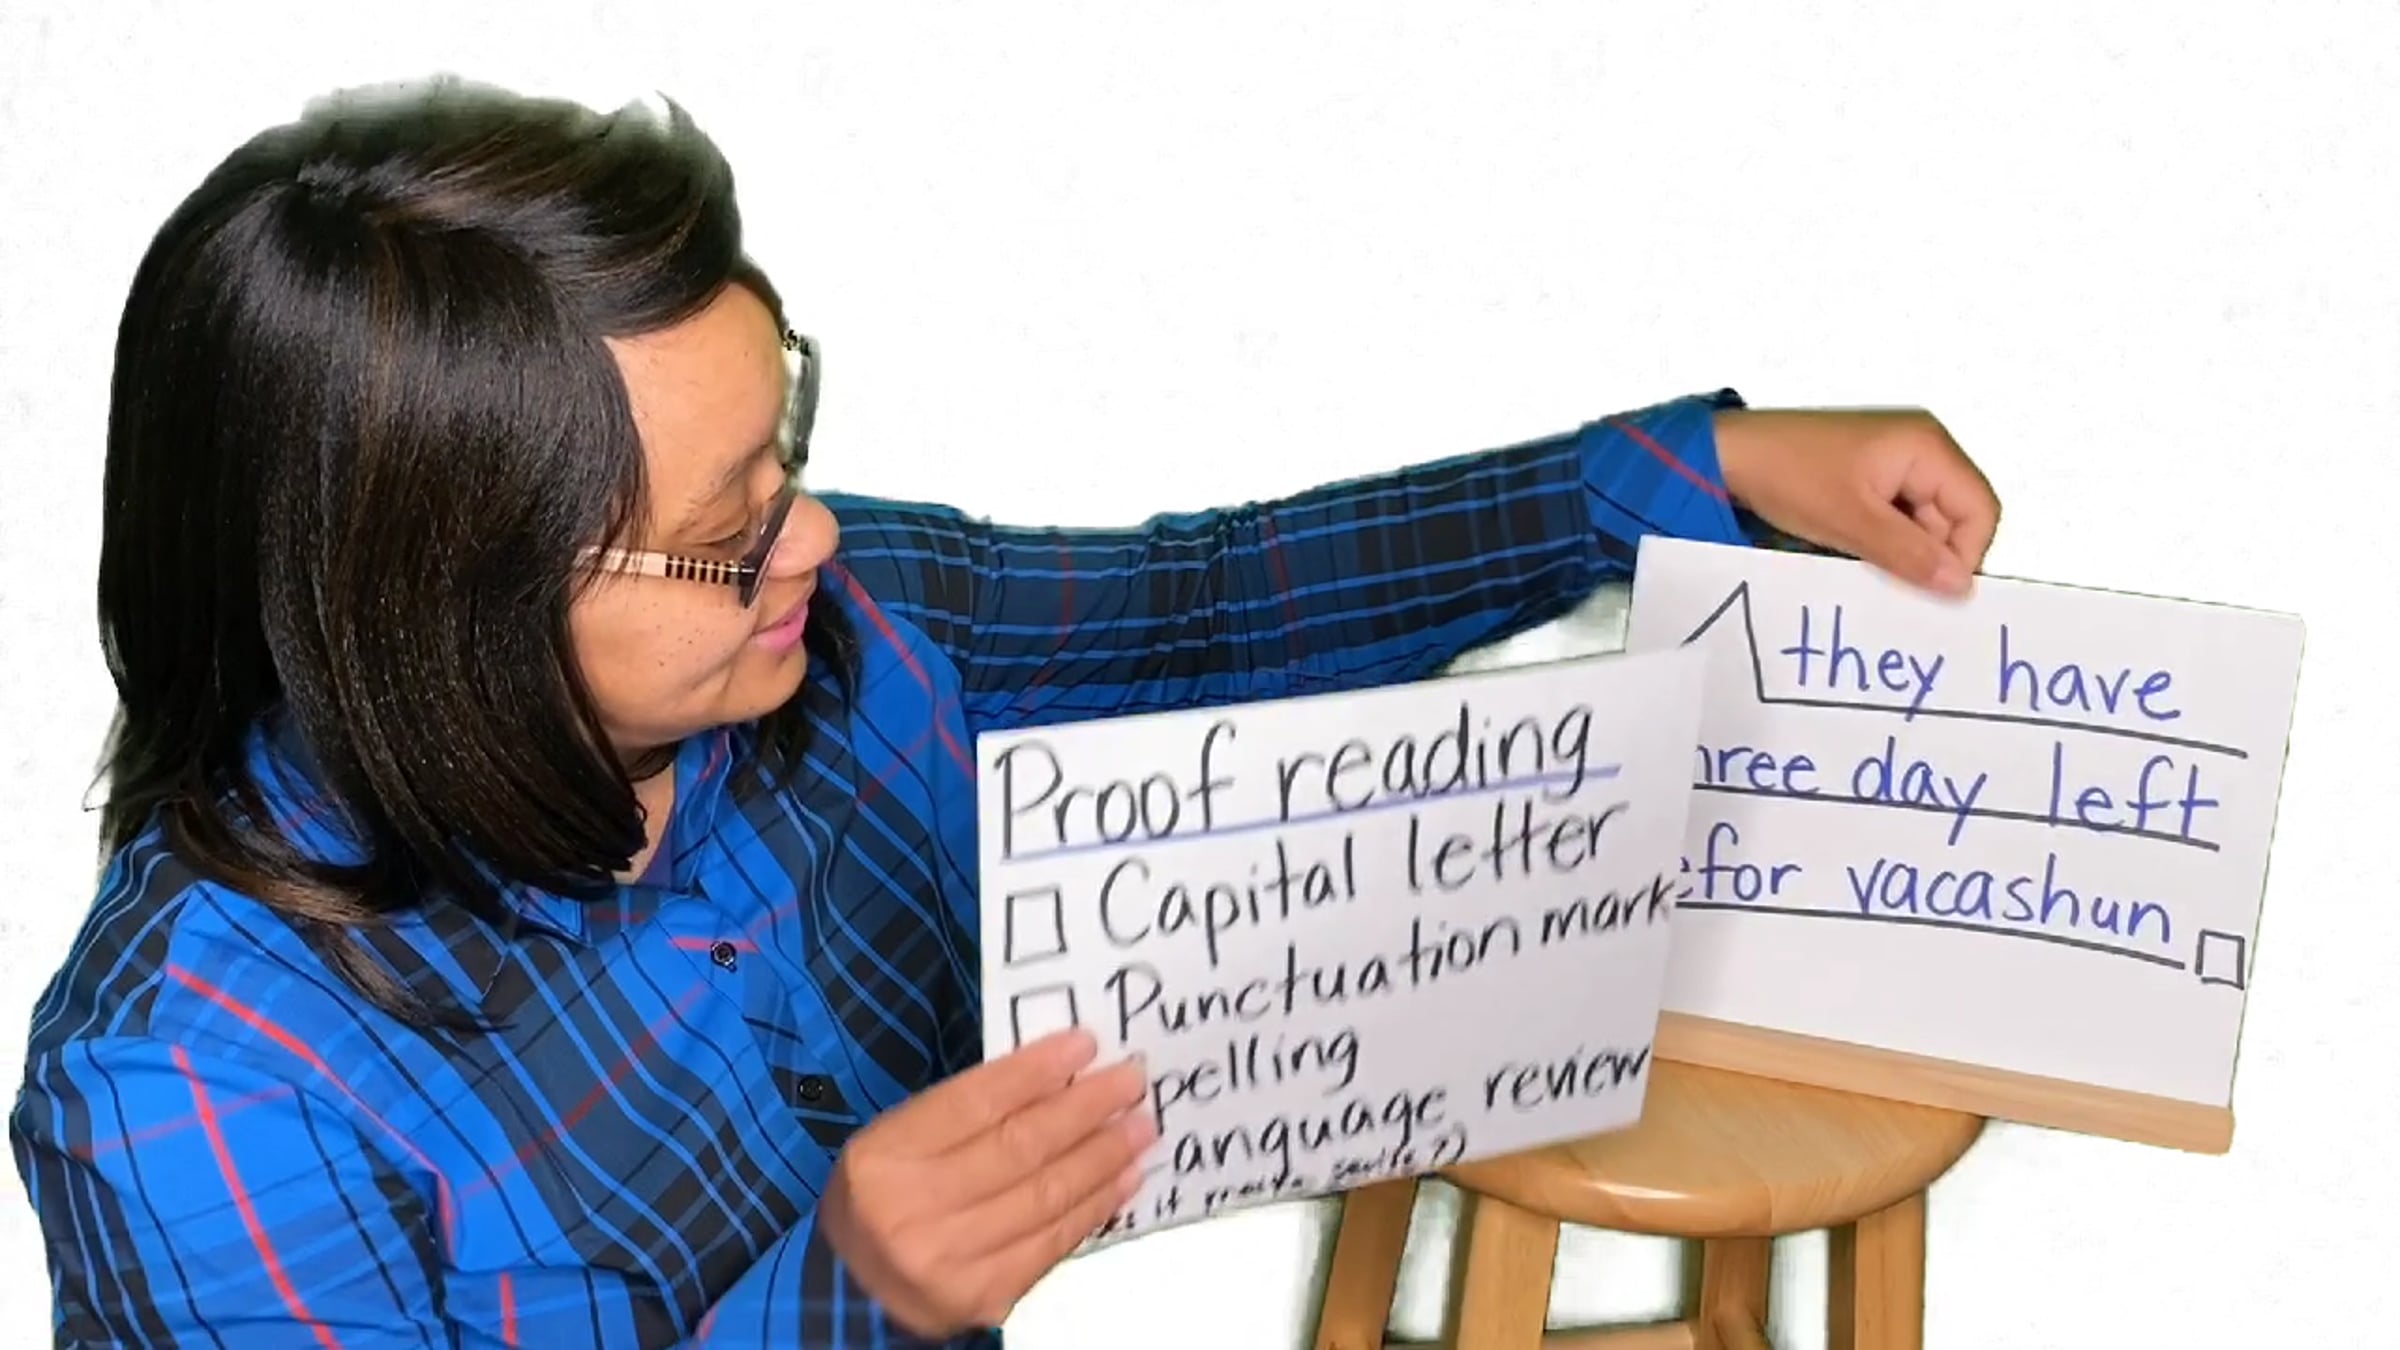 Proof reading
Capital letter
Punctuation mark
pelling
anguage review
it
they have
hree day left
for vacashun